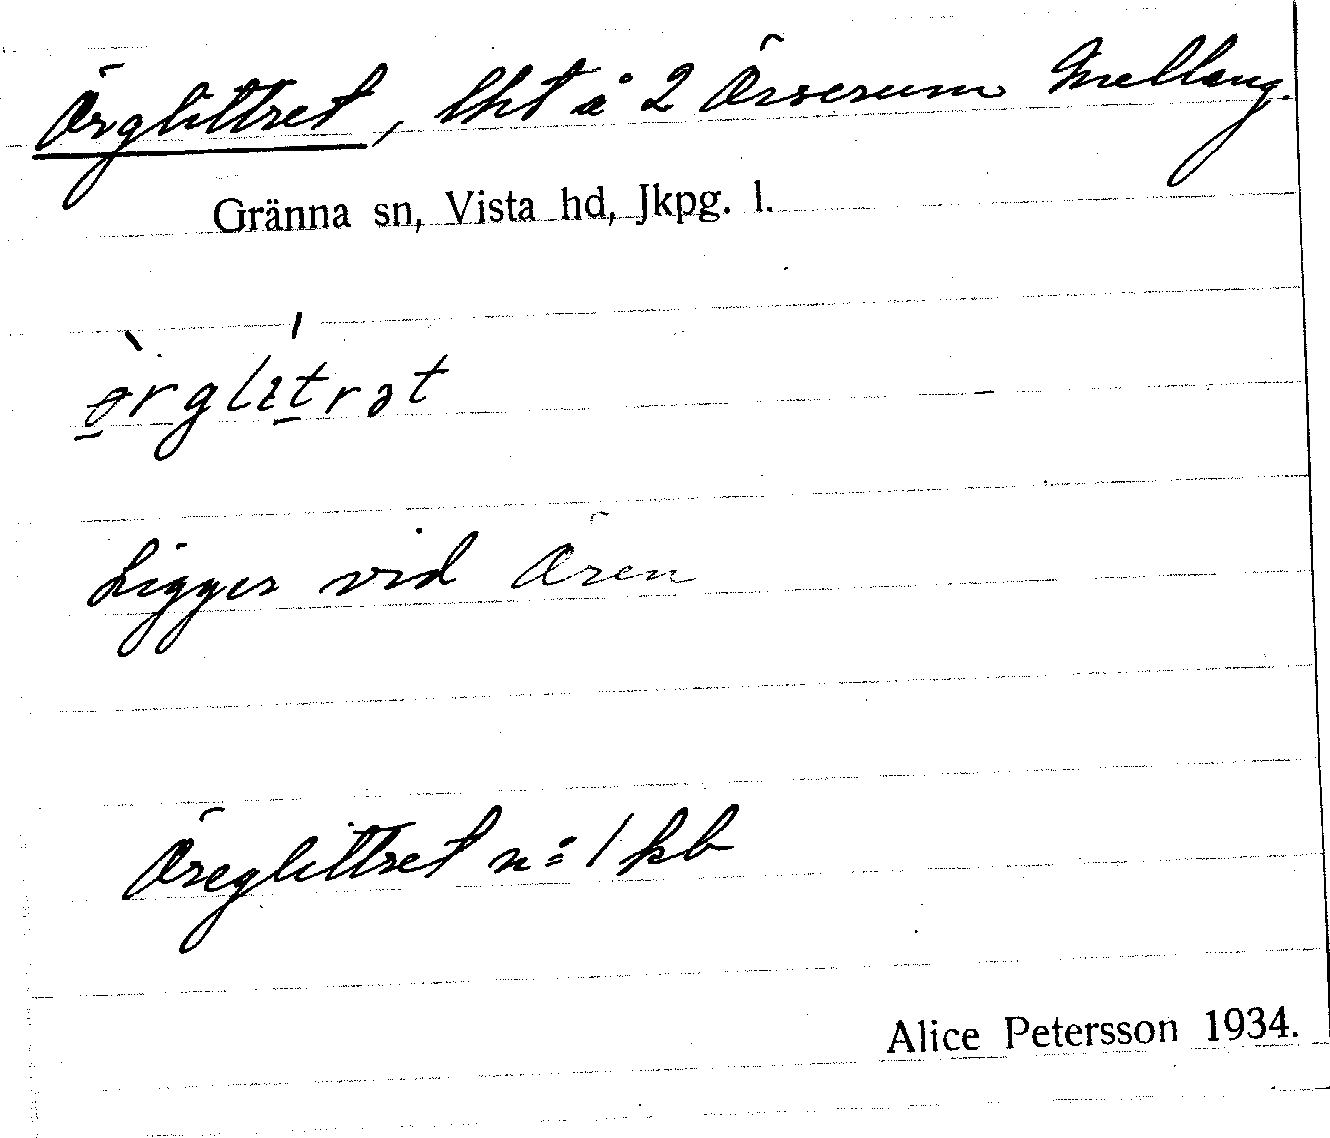 Örglittret, lht å 2 Örserum Mellang.
Gränna sn, Vista hd, Jkpg. l.
ørglitrət
Ligger vid Ören
Öreglittret n:1 kb
Alice Petersson 1934.